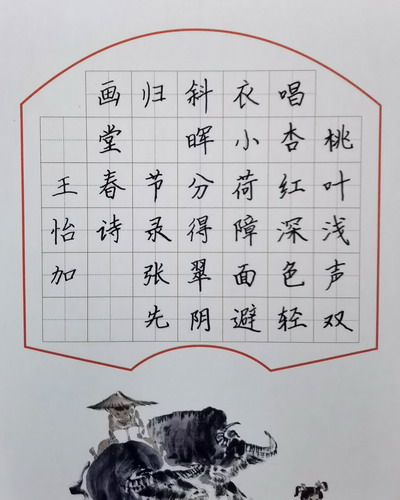 桃叶浅声双
唱杏红深色轻
衣小荷障面避
斜晖分得翠阴
归 节录张先
画堂春诗
王怡加